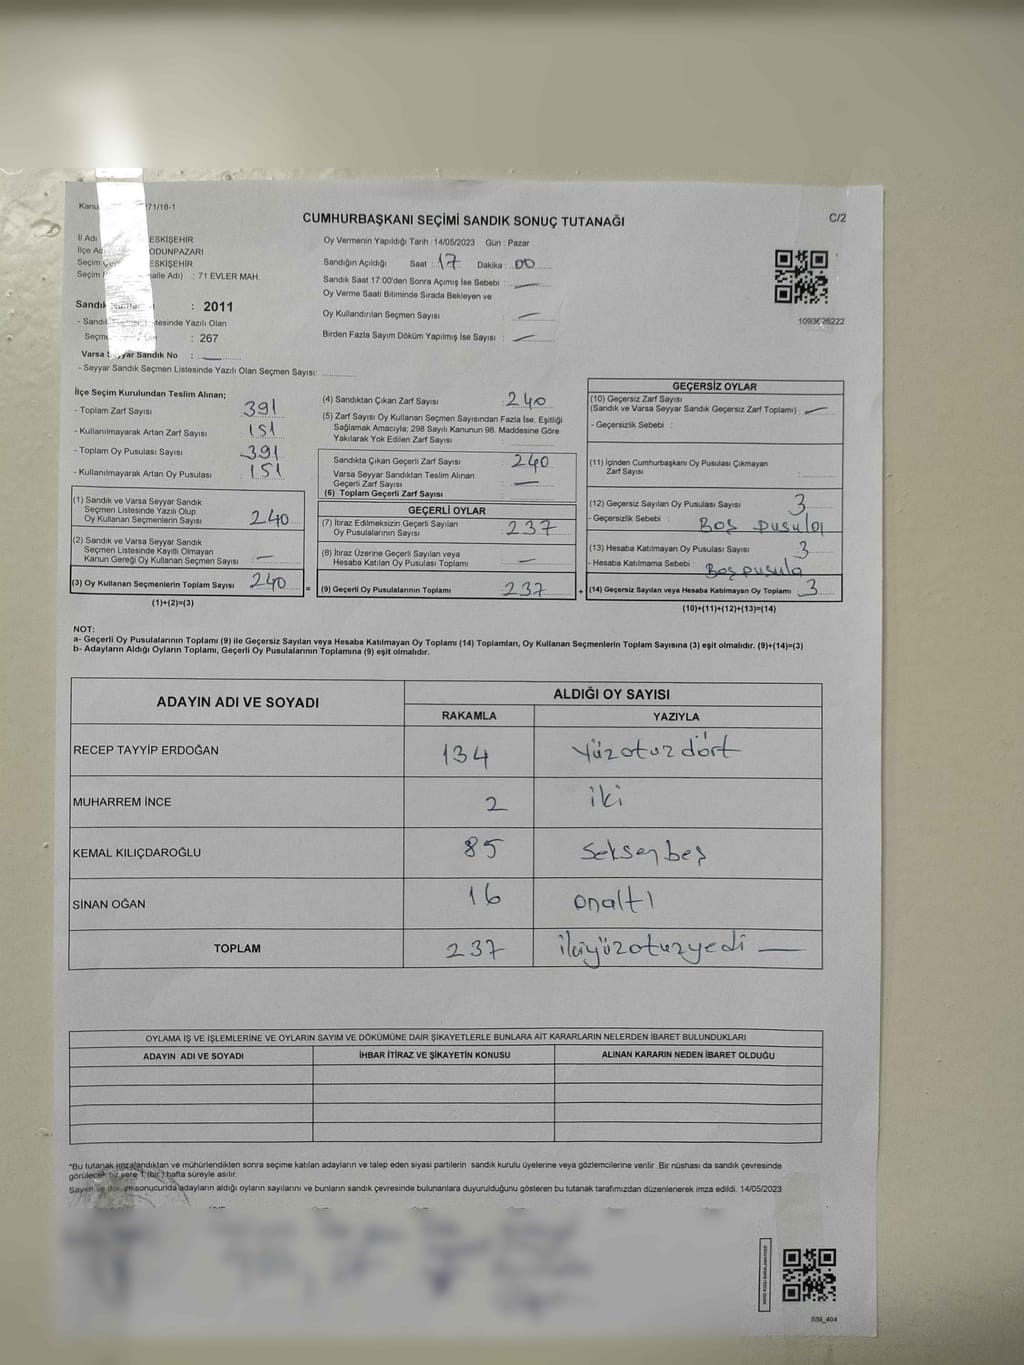 Kanu 71/18-1
CUMHURBAŞKANI SEÇİMİ SANDIK SONUÇ TUTANAĞI
C/2
İl Adı ESKİŞEHİR
İlçe ODUNPAZARI
Seçim ESKİŞEHİR
Seçim Adı) : 71 EVLER MAH.
Oy Vermenin Yapıldığı Tarih : 14/05/2023 Gün : Pazar
Sandığın Açıldığı Saat : 17 Dakika : 00
Sandık Saat 17:00'den Sonra Açımış İse Sebebi : —
Oy Verme Saati Bitiminde Sırada Bekleyen ve
Oy Kullandırılan Seçmen Sayısı : —
Birden Fazla Sayım Döküm Yapılmış İse Sayısı : —
1093626222
: 2011
Yazılı Olan
: 267
Varsa Seyyar Sandık No : —
- Seyyar Sandık Seçmen Listesinde Yazılı Olan Seçmen Sayısı:
İlçe Seçim Kurulundan Teslim Alınan;
- Toplam Zarf Sayısı 391
- Kullanılmayarak Artan Zarf Sayısı 151
- Toplam Oy Pusulası Sayısı 391
- Kullanılmayarak Artan Oy Pusulası 151
(1) Sandık ve Varsa Seyyar Sandık
Seçmen Listesinde Yazılı Olup
Oy Kullanan Seçmenlerin Sayısı 240
(2) Sandık ve Varsa Seyyar Sandık
Seçmen Listesinde Kayıtlı Olmayan
Kanun Gereği Oy Kullanan Seçmen Sayısı —
(3) Oy Kullanan Seçmenlerin Toplam Sayısı 240 =
(1)+(2)=(3)
(4) Sandıktan Çıkan Zarf Sayısı 240
(5) Zarf Sayısı Oy Kullanan Seçmen Sayısından Fazla İse, Eşitliği
Sağlamak Amacıyla; 298 Sayılı Kanunun 98. Maddesine Göre
Yakılarak Yok Edilen Zarf Sayısı
Sandıkta Çıkan Geçerli Zarf Sayısı 240
Varsa Seyyar Sandıktan Teslim Alınan
Geçerli Zarf Sayısı —
(6) Toplam Geçerli Zarf Sayısı
GEÇERLİ OYLAR
(7) İtiraz Edilmeksizin Geçerli Sayılan
Oy Pusulalarının Sayısı 237
(8) İtiraz Üzerine Geçerli Sayılan veya
Hesaba Katılan Oy Pusulası Toplamı —
(9) Geçerli Oy Pusulalarının Toplamı 237 +
GEÇERSİZ OYLAR
(10) Geçersiz Zarf Sayısı
(Sandık ve Varsa Seyyar Sandık Geçersiz Zarf Toplamı) : —
- Geçersizlik Sebebi :
(11) İçinden Cumhurbaşkanı Oy Pusulası Çıkmayan
Zarf Sayısı
(12) Geçersiz Sayılan Oy Pusulası Sayısı 3
- Geçersizlik Sebebi : Boş pusula
(13) Hesaba Katılmayan Oy Pusulası Sayısı 3
- Hesaba Katılmama Sebebi : Boş pusula
(14) Geçersiz Sayılan veya Hesaba Katılmayan Oy Toplamı 3
(10)+(11)+(12)+(13)=(14)
NOT:
a- Geçerli Oy Pusulalarının Toplamı (9) ile Geçersiz Sayılan veya Hesaba Katılmayan Oy Toplamı (14) Toplamları, Oy Kullanan Seçmenlerin Toplam Sayısına (3) eşit olmalıdır. (9)+(14)=(3)
b- Adayların Aldığı Oyların Toplamı, Geçerli Oy Pusulalarının Toplamına (9) eşit olmalıdır.
ADAYIN ADI VE SOYADI ALDIĞI OY SAYISI
RAKAMLA YAZIYLA
RECEP TAYYİP ERDOĞAN 134 Yüzotuzdört
MUHARREM İNCE 2 iki
KEMAL KILIÇDAROĞLU 85 Seksenbeş
SİNAN OĞAN 16 onaltı
TOPLAM 237 ikiyüzotuzyedi —
OYLAMA İŞ VE İŞLEMLERİNE VE OYLARIN SAYIM VE DÖKÜMÜNE DAİR ŞİKAYETLERLE BUNLARA AİT KARARLARIN NELERDEN İBARET BULUNDUKLARI
ADAYIN ADI VE SOYADI İHBAR İTİRAZ VE ŞİKAYETİN KONUSU ALINAN KARARIN NEDEN İBARET OLDUĞU
*Bu tutanak imzalandıktan ve mühürlendikten sonra seçime katılan adayların ve talep eden siyasi partilerin sandık kurulu üyelerine veya gözlemcilerine verilir. Bir nüshası da sandık çevresinde
görülecek bir yere 1 (bir) hafta süreyle asılır.
Sayım ve döküm sonucunda adayların aldığı oyların sayılarını ve bunların sandık çevresinde bulunanlara duyurulduğunu gösteren bu tutanak tarafımızdan düzenlenerek imza edildi. 14/05/2023